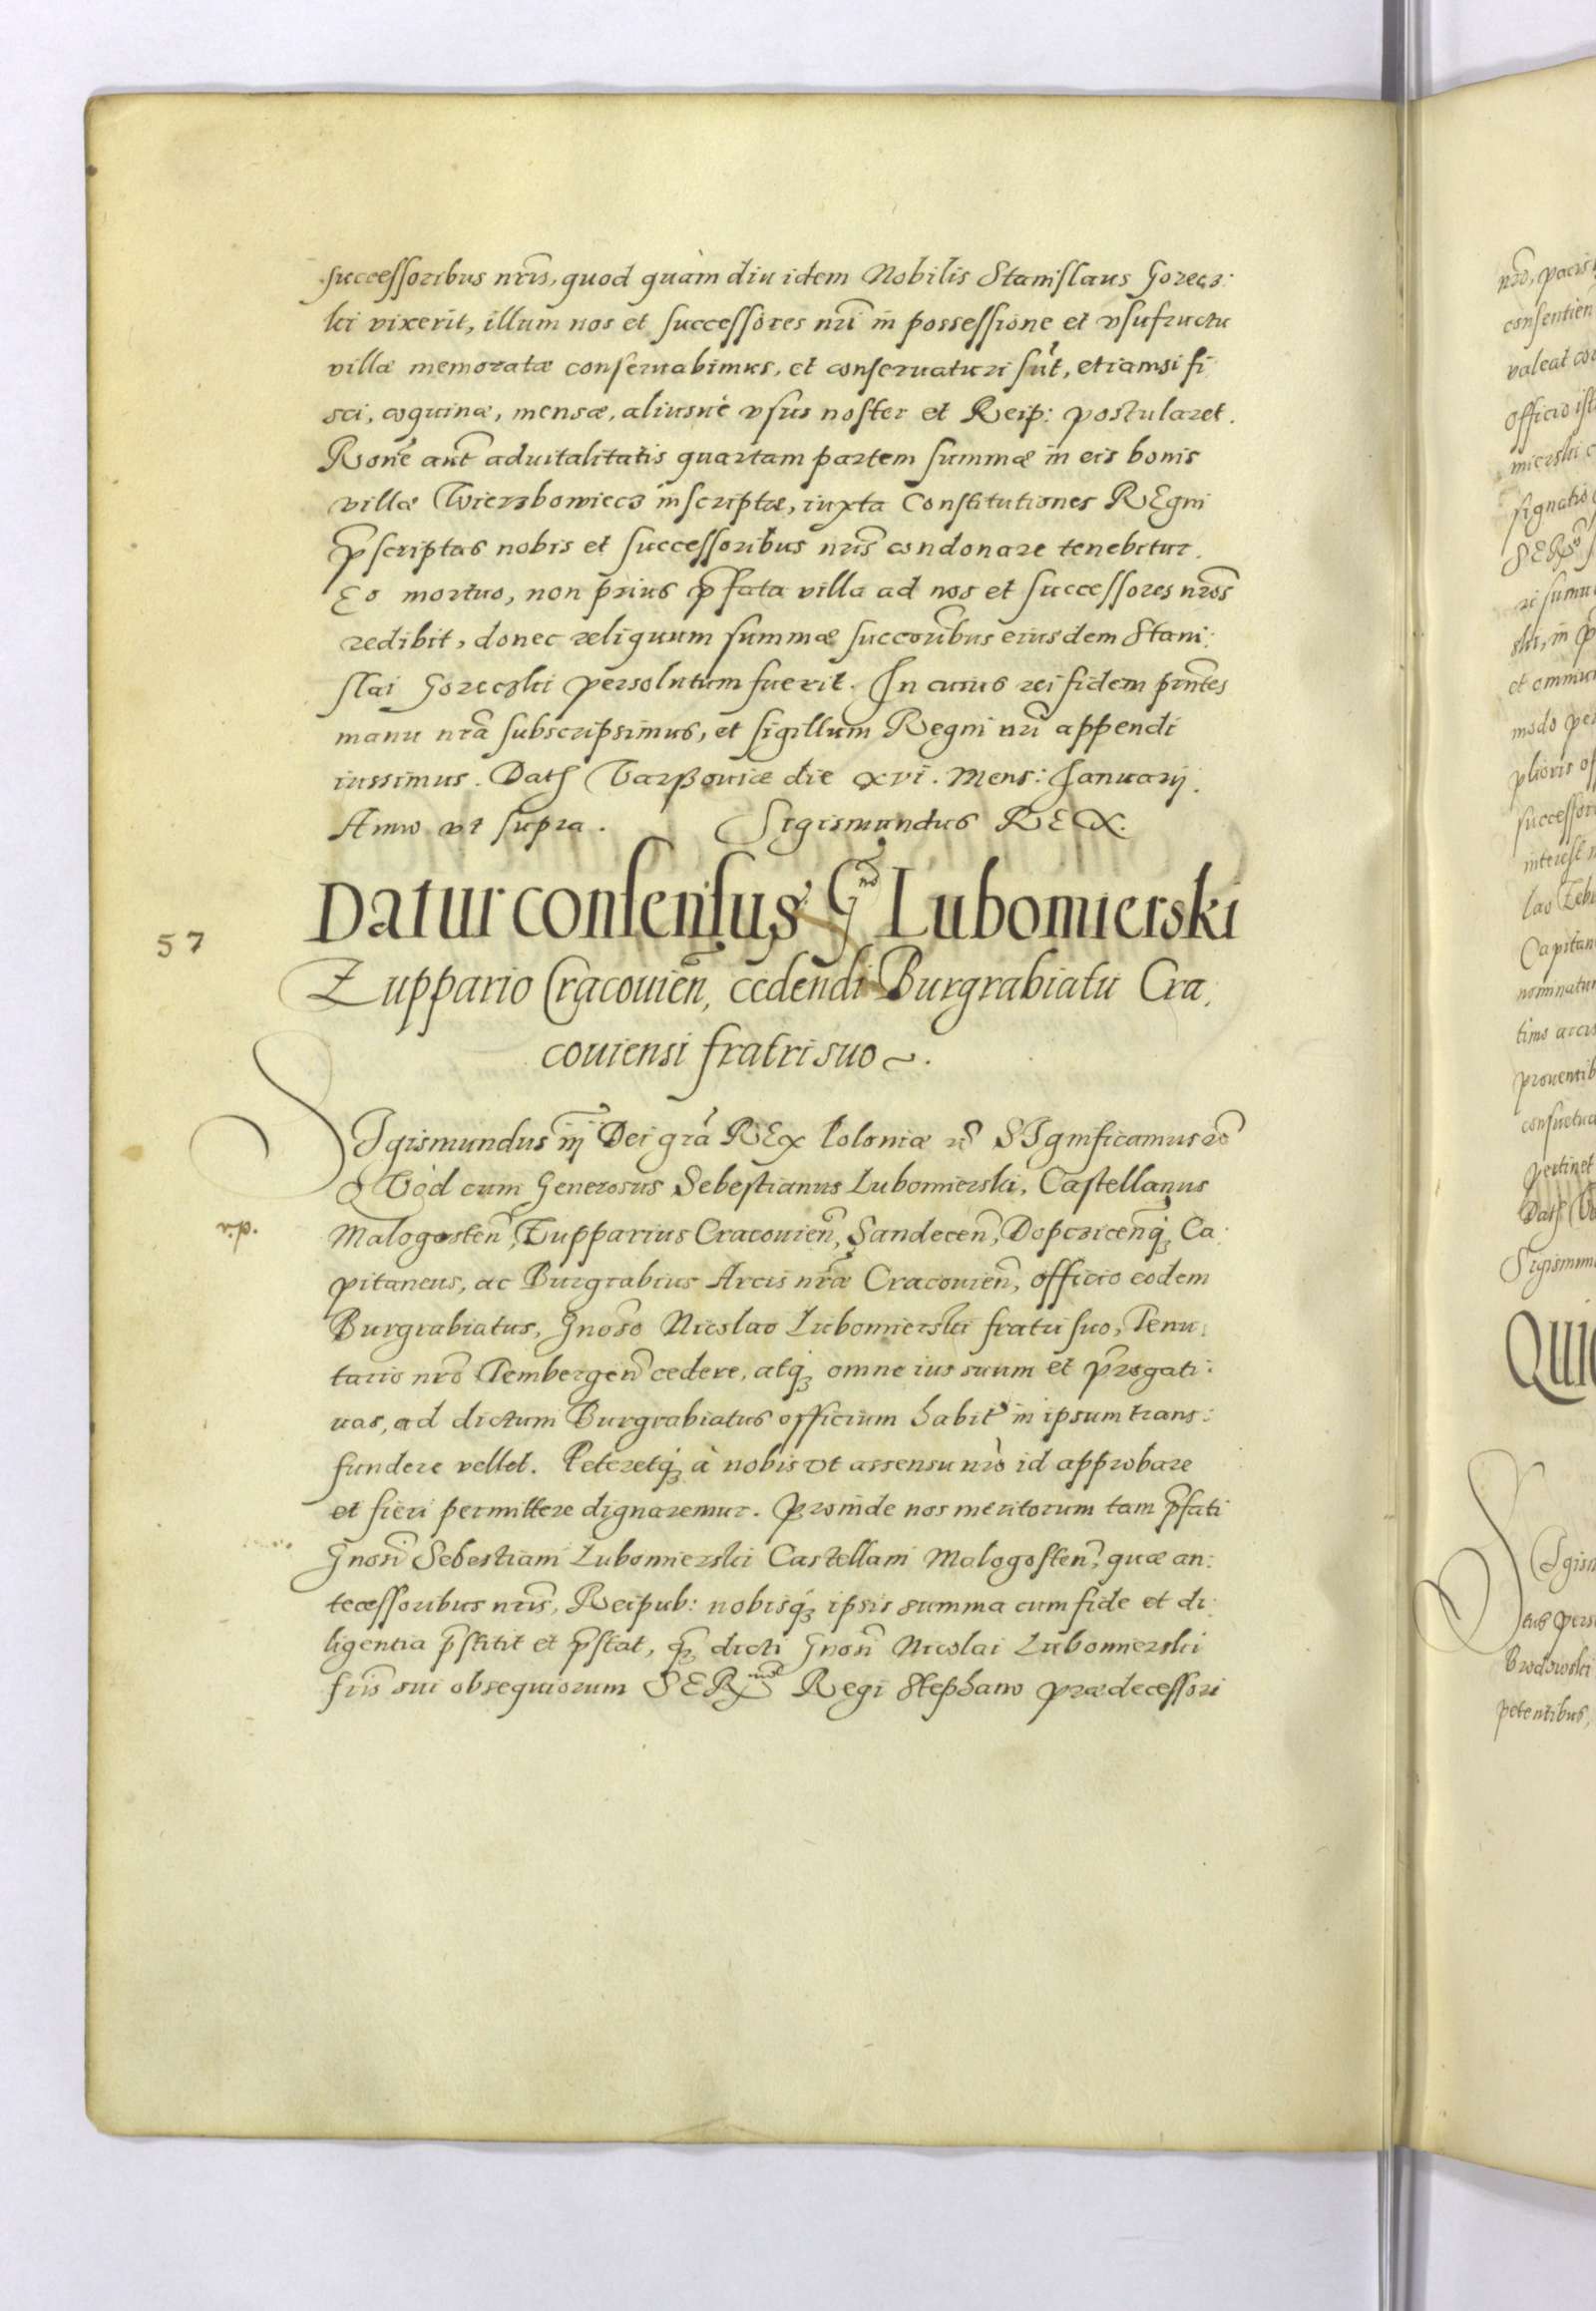 successoribus nr̃is, quod quàm diu idem Nobilis Stanislaus Gorecz:
ki vixerit, illum nos et successores nr̃i in possessione et vsufructu
villæ memoratæ conseruabimus, et conseruaturi sũt, etiamsi fi:
sci, coquinæ, mensæ, aliusuè vsus noster et Reip: postularet.
Rõne aut̃ aduitalitatis quartam partem summæ in eis bonis
villæ Wierzbowiecz inscriptæ, iuxta Constitutiones REgni
p̃scriptas nobis et successoribus nr̃is condonare tenebitur.
Eo mortuo, non prius p̃fata villa ad nos et successores nr̃os
redibit, donec reliquum summæ succõribus eiusdem Stani:
slai Goreczki persolutum fuerit. In cuius rei fidem pñtes
manu nr̃a subscripsimus, et sigillum Regni nr̃i appendi
iussimus. Dat. Varßouiæ die xvi. Mens: Januarij.
Anno vt supra. Sigismundus REX.
Datur consensus Gnõ Lubomierski
57
Zuppario Cracouieñ, cedendi Burgrabiatu Cra,
couiensi fratri suo.
SIgismundus iij Dei gr̃a REx Poloniæ &c̃ SIgnificamus &c̃
QVòd cum Generosus Sebestianus Lubomierski, Castellanus
.p.v.
Malogosteñ, Zupparius Cracouieñ, Sandeceñ, Dopcziceñq̃, Ca:
pitaneus, ac Burgrabius Arcis nr̃æ Cracouieñ, officio eodem
Burgrabiatus, Gnõso Nicolao Lubomierski fratri suo, Tenu:
tario nr̃o Tembergeñ cedere, atq̃ omne ius suum et p̃rogati:
uas, ad dictum Burgrabiatus officium habit̃ in ipsum trans:
fundere vellet. Peteretq̃ à nobis vt assensu nr̃o id approbare
et fieri permittere dignaremur. Proinde nos meritorum tam p̃fati
Gnõsi Sebestiani Lubomierski Castellani Malogosteñ, quæ an:
tecessoribus nr̃is, Reipub: nobisq̃ ipsis summa cum fide et di:
ligentia p̃stitit et p̃stat, q̃ dicti Gnõsi Nicolai Lubomierski
fr̃is sui obsequiorum SERmo Regi Stephano prædecessori